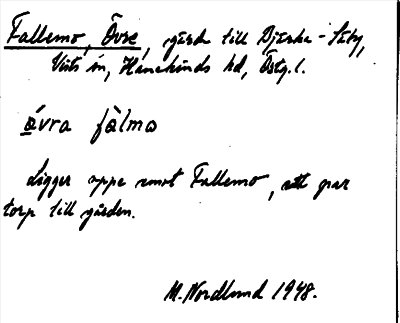 Fallemo, Övre, gård till Bjärka-Säby,
Vists sn, Hanekinds hd, Östg.l.
åvra fàlmo
Ligger uppe emot Fallemo, ett par
torp till gården.
M. Nordlund 1948.